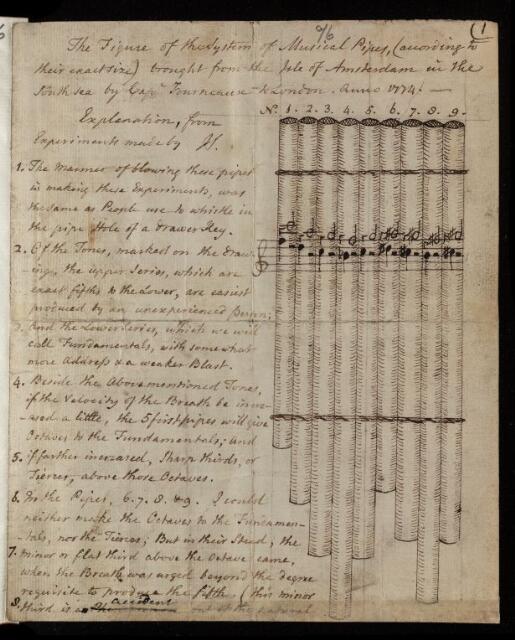 96
(1
The Figure of the System of Musical Pipes, (according to
their exact size) brought from the Isle of Amsterdam in the
South sea by Capn. Fourneaux to London. Anno 1774. —
Explanation, from
Experiments made by JS.
No. 1. 2. 3. 4. 5. 6. 7. 8. 9.
1. The Manner of blowing these pipes
in making these Experiments, was
the same as People use to whistle in
the pipe Hole of a Drawer Key.
2. Of the Tones, marked on the Draw-
-ing, the upper Series, which are
exact fifths to the Lower, are easiest
produced by an unexperienced Person;
3. And the Lower Series, which we will
call Fundamentals, with somewhat
more Address & a weaker Blast.
4. Beside the Abovementioned Tones,
if the Velocity of the Breath be incre-
-ased a little, the 5 first pipes will give
Octaves to the Fundamentals; and
5. if farther increased, Sharp thirds, or
Tierces, above those Octaves.
6. In the Pipes, 6. 7. 8. & 9. I could
neither make the Octaves to the Fundamen-
-tals, nor the Tierces; But in their Stead, the
7. minor or flat third above the Octave came,
when the Breath was urged beyond the degree
requisite to produce the fifth. (this minor
accident
8. third is an out of the natural